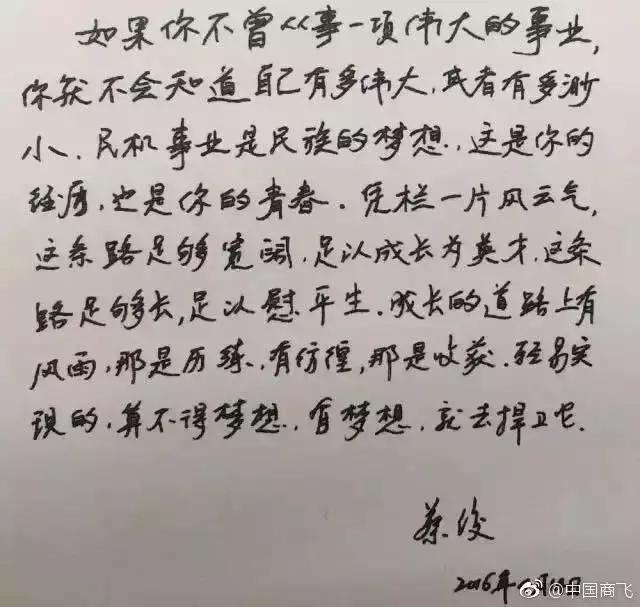 如果你不曾从事一项伟大的事业,
你就不会知道自己有多伟大,或者有多渺
小.民机事业是民族的梦想.这是你的
经历,也是你的青春.凭栏一片风云气,
这条路足够宽阔,足以成长为英才.这条
路足够长,足以慰平生.成长的道路上有
风雨,那是历练,有彷徨,那是收获.轻易实
现的,算不得梦想.有梦想,就去捍卫它.
蔡俊
2016年
@中国商飞